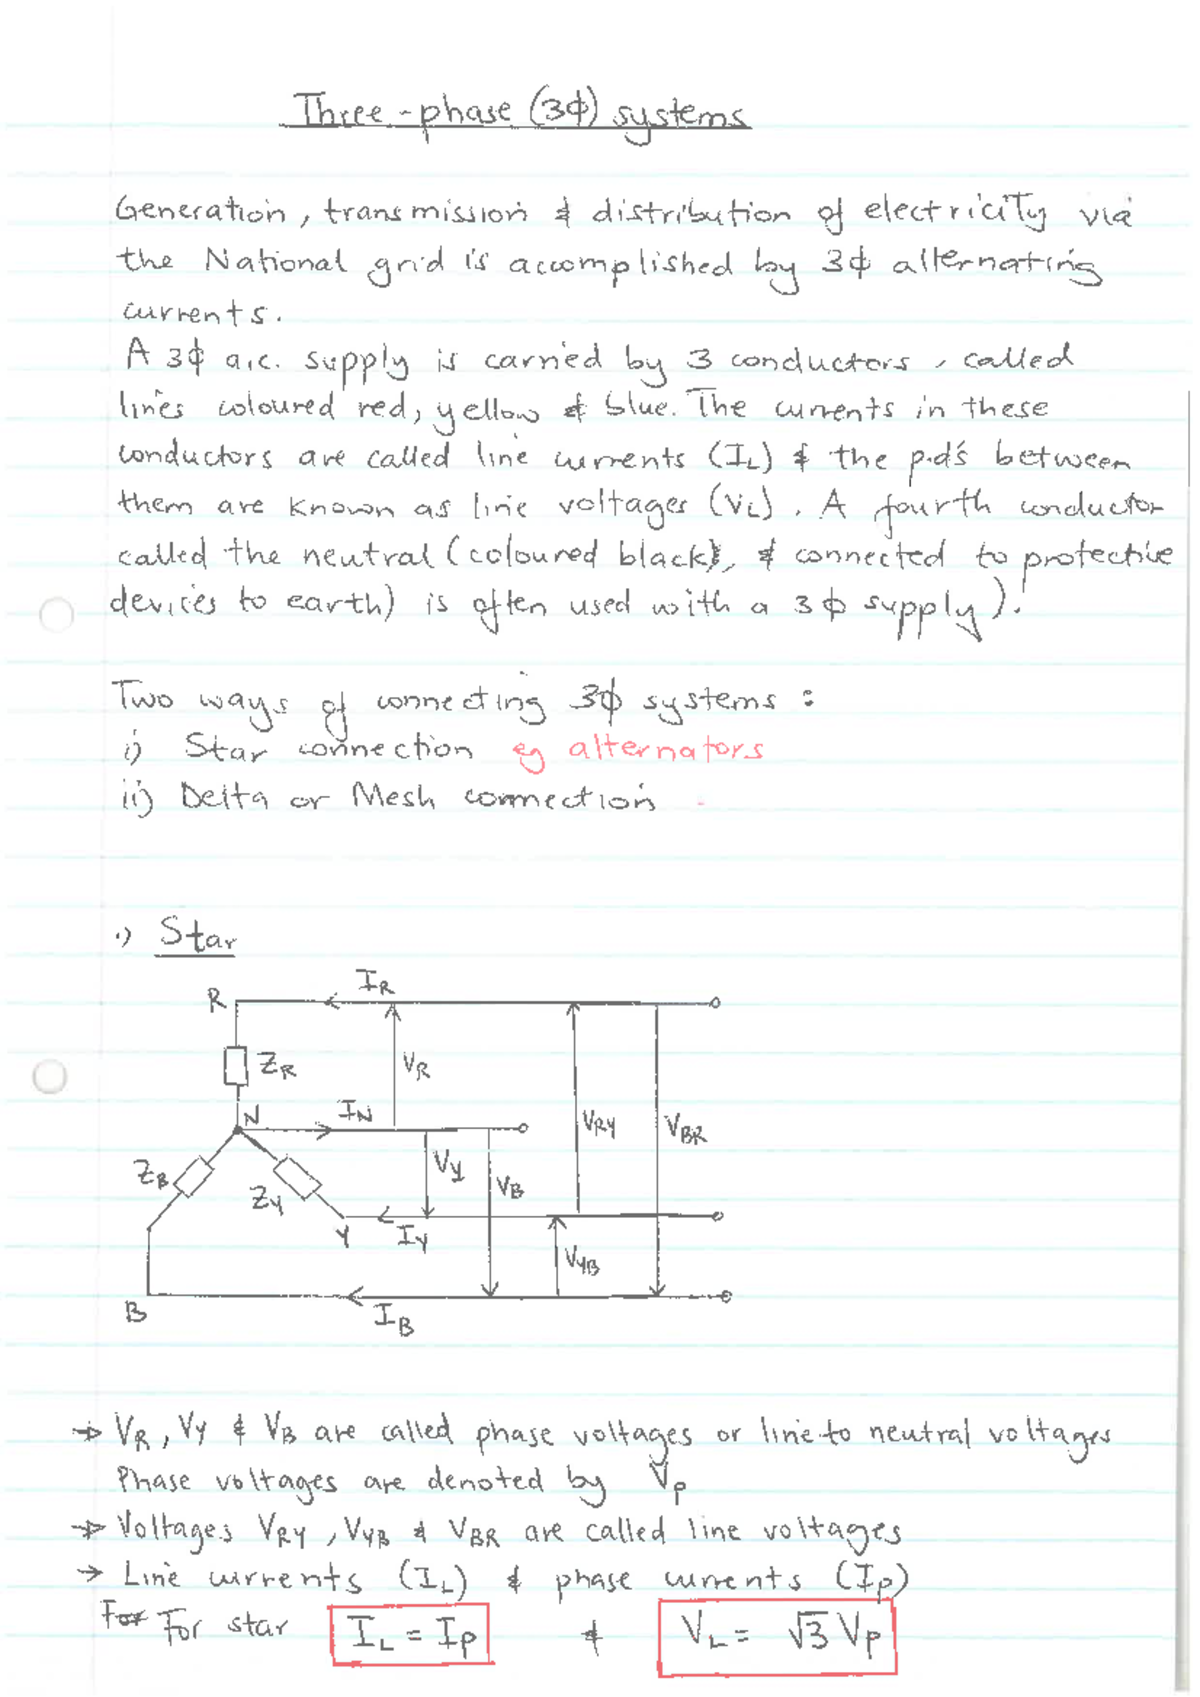 Three-phase (3ϕ) systems
Generation, transmission & distribution of electricity via
the National grid is accomplished by 3ϕ alternating
currents.
A 3ϕ a.c. supply is carried by 3 conductors, called
lines coloured red, yellow & blue. The currents in these
conductors are called line currents (IL) & the p.d's between
them are known as line voltages (VL). A fourth conductor
called the neutral (coloured black), & connected to protective
devices to earth) is often used with a 3ϕ supply).
Two ways of connecting 3ϕ systems :
i) Star connection eg alternators
ii) Delta or Mesh connection
i) Star
IR
R
ZR
VR
N
IN
VRY
VBR
ZB
ZY
VY
VB
Y
IY
VYB
B
IB
→ VR, VY & VB are called phase voltages or line to neutral voltages
Phase voltages are denoted by Vp
→ Voltages VRY, VYB & VBR are called line voltages
→ Line currents (IL) & phase currents (Ip)
For For star IL = Ip & VL = √3 Vp